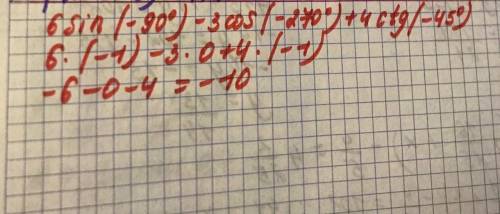 6 sin (-90°) - 3 cos (-270°) + 4 ctg (-45°)
6 · (-1) - 3 · 0 + 4 · (-1)
-6 - 0 - 4 = -10